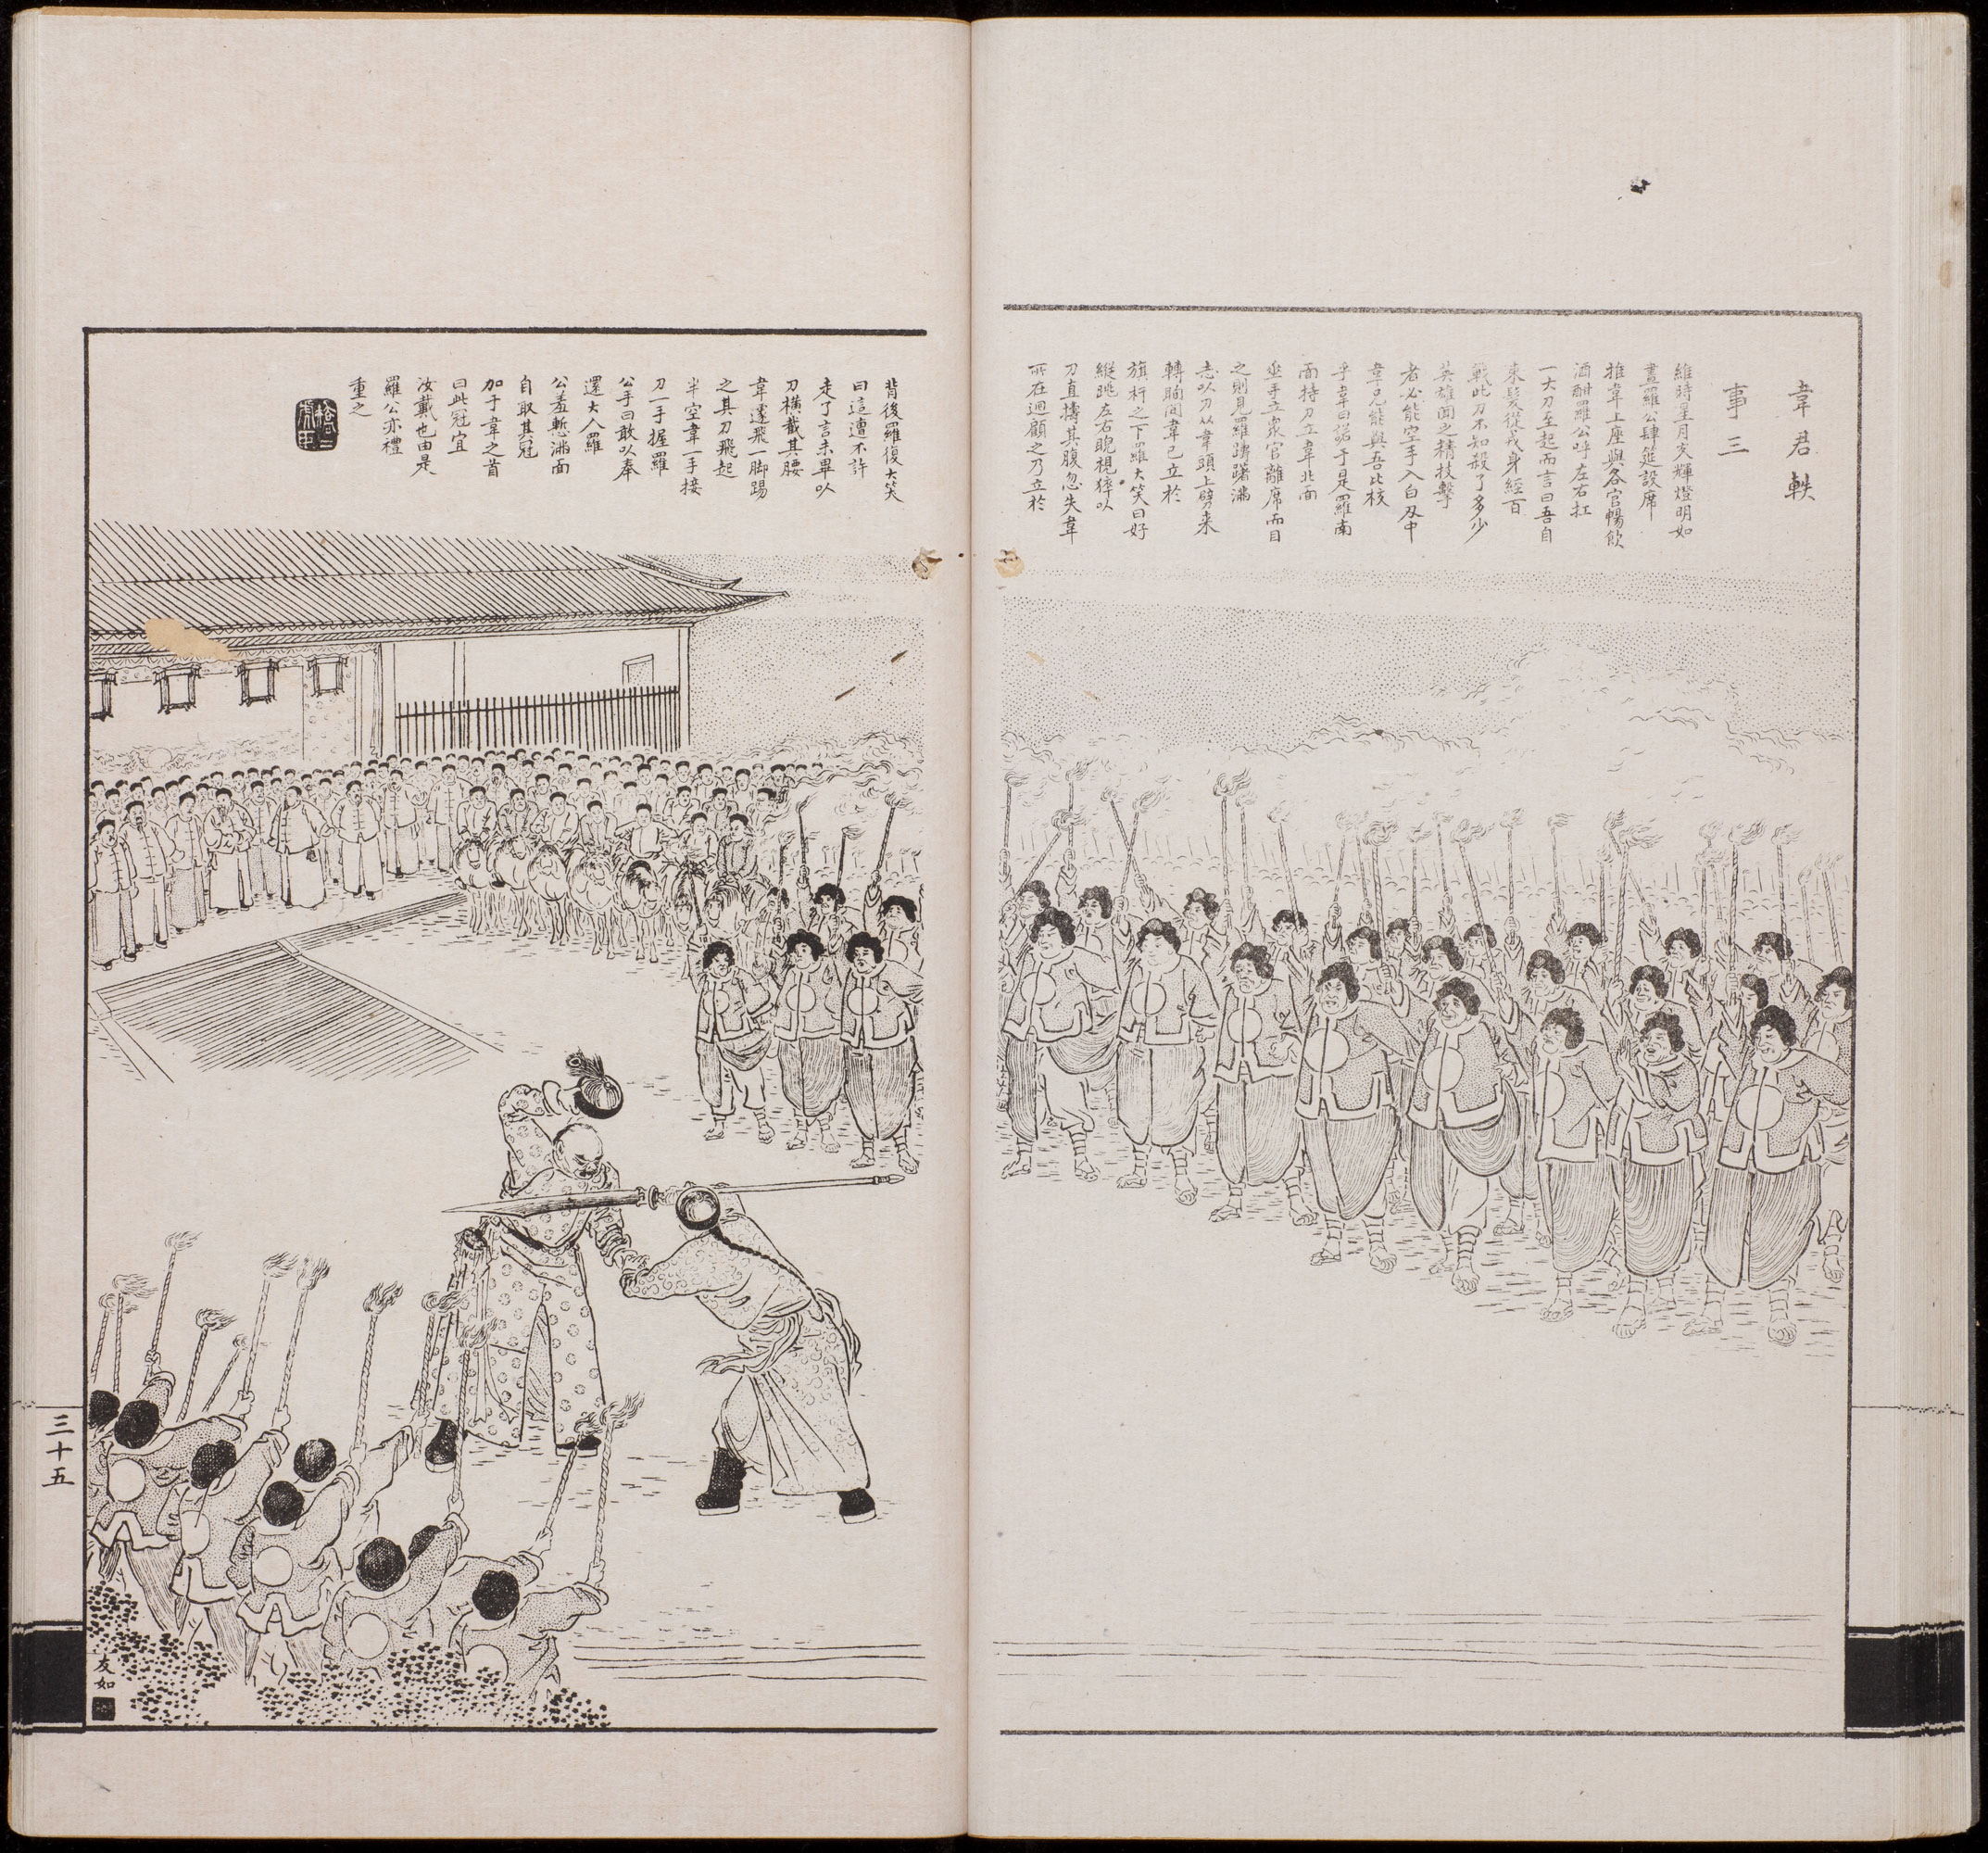 韋君軼
事三
維時星月交輝燈明如
晝羅公肆筵設席
推韋上座與各官暢飲
酒酣羅公呼左右扛
一大刀至起而言曰吾自
束髮從戎身經百
戰此刀不知殺了多少
英雄聞之精技擊
者必能空手入白刃中
韋兄能與吾比核
乎韋曰諾于是羅南
面持刀立韋北面
垂手立眾官離席而目
之則見羅躊躇滿
志以刀从韋頭上劈来
轉瞬間韋已立於
旗杆之下羅大笑曰好
縱跳左右睨視猝以
刀直擣其腹忽失韋
所在迴顧之乃立於
背後羅復大笑
曰這遭不許
走了言未畢以
刀橫截其腰
韋遽飛一脚踢
之其刀飛起
半空韋一手接
刀一手握羅
公手曰敢以奉
還大人羅
公羞慙滿面
自取其冠
加于韋之首
曰此冠宜
汝戴也由是
羅公亦禮
重之
三十五
友如